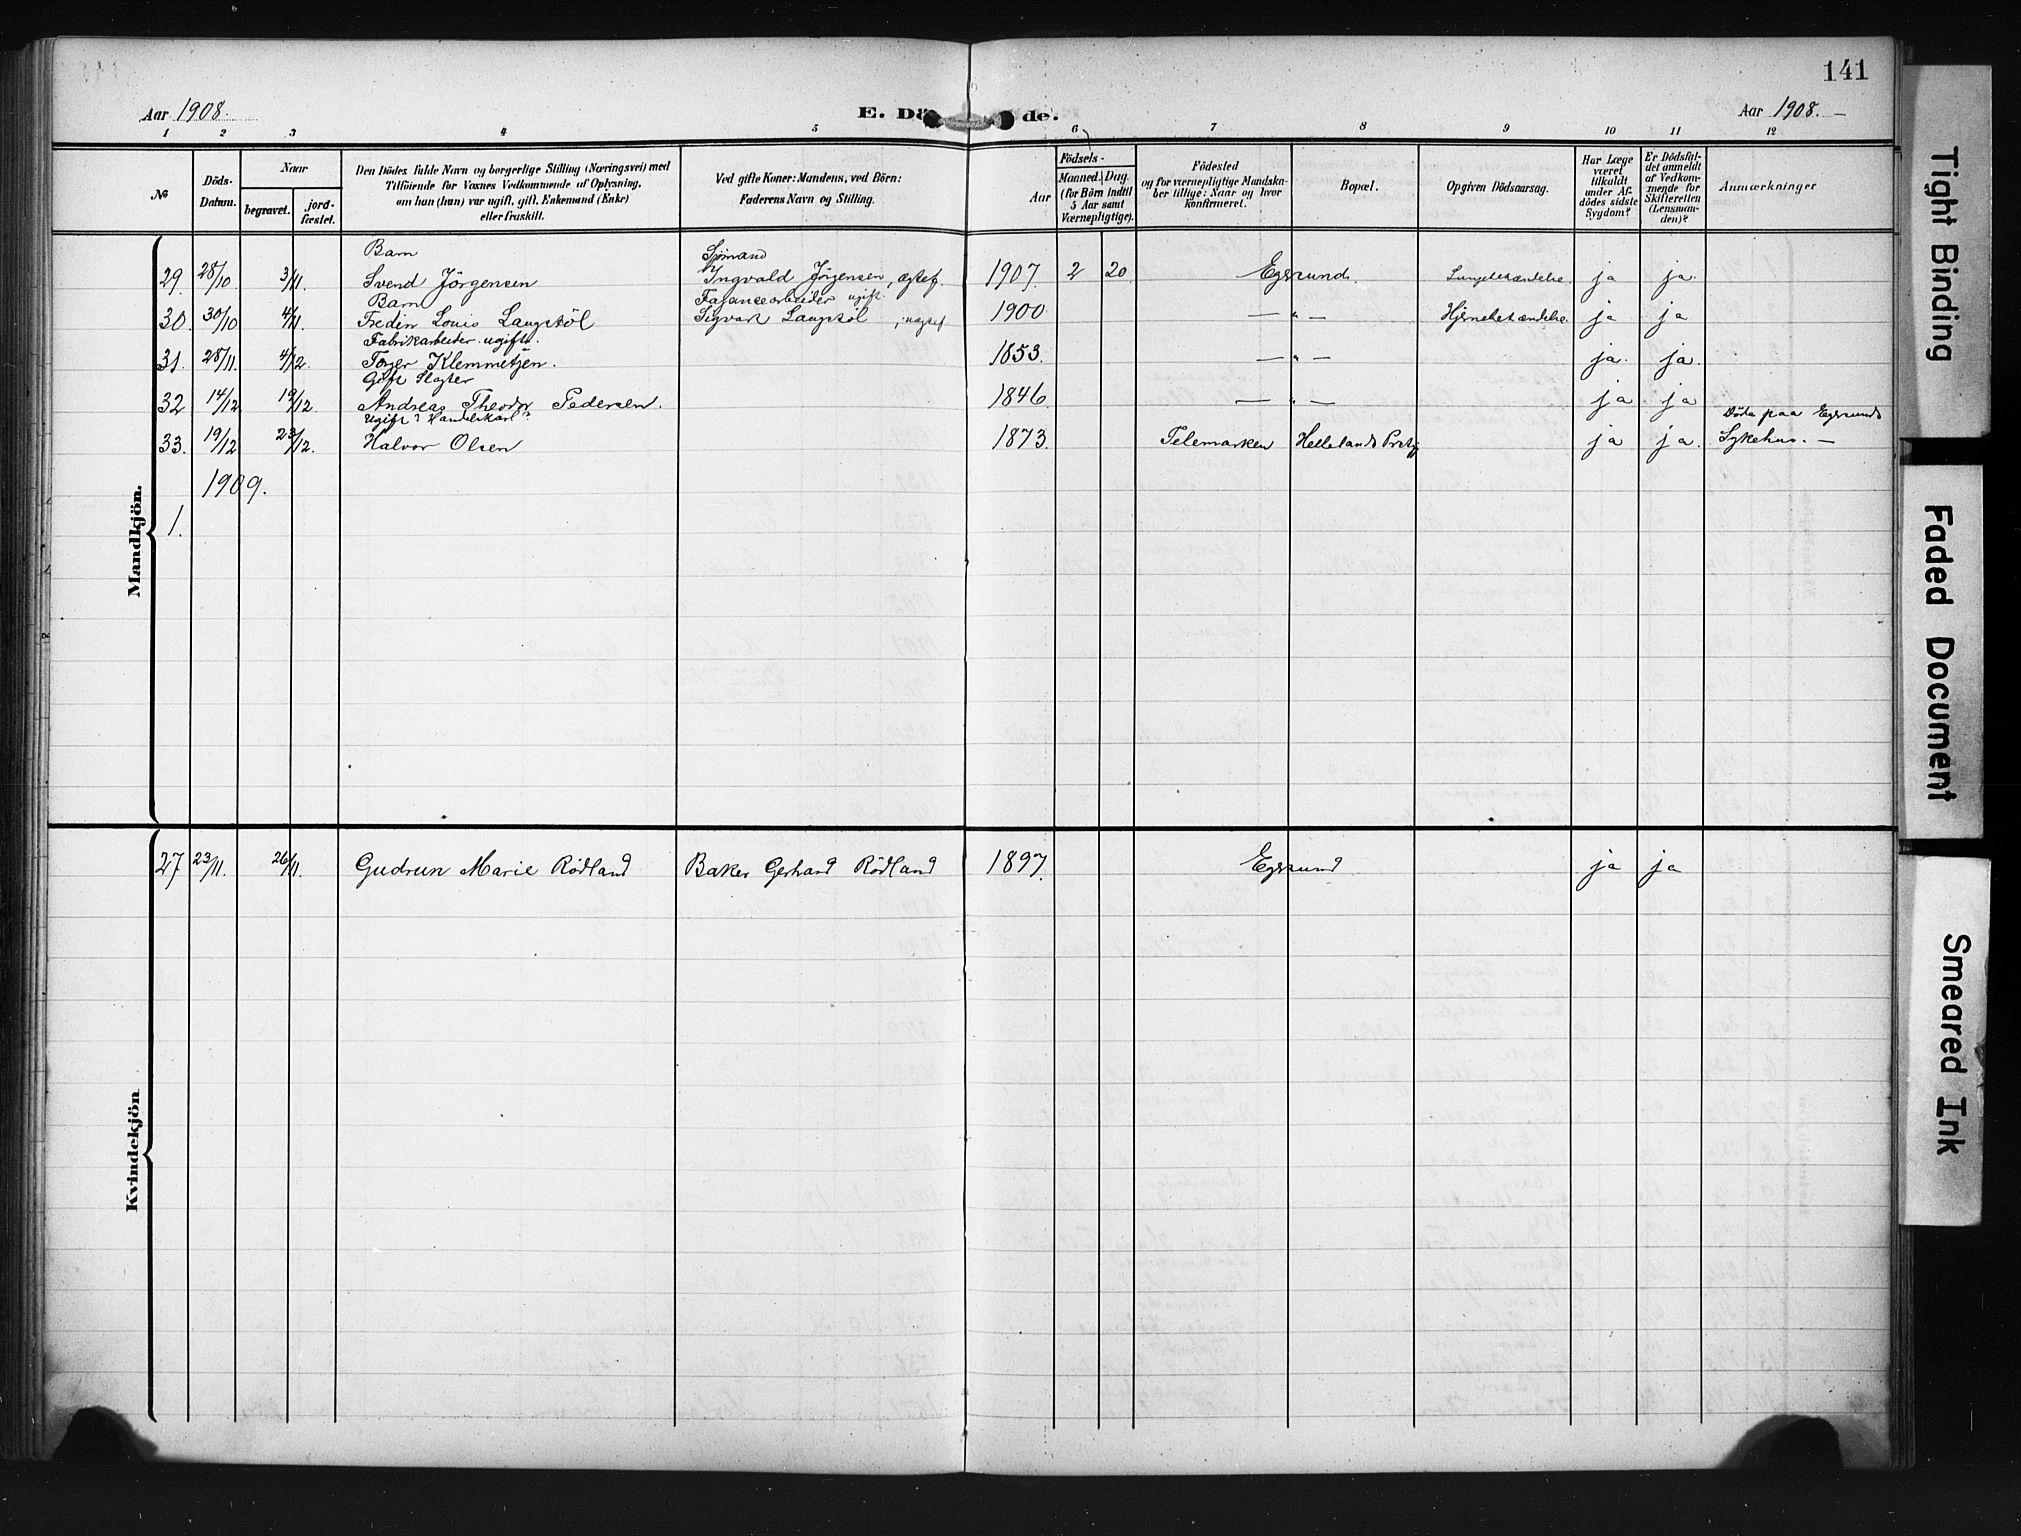 141
Aar 1908.
E. Dö de.
Aar 1908.
1 2 3 4 5 6 7 8 9 10 11 12
№
Döds-Datum.
Naar
begravet.
jord-fæstet.
Den Dödes fulde Navn og borgerlige Stilling (Næringsvei) med
Tilföiende for Voxnes Vedkommende af Oplysning,
om han (hun) var ugift, gift, Enkemand (Enke)
eller fraskilt.
Ved gifte Koner: Mandens, ved Börn:
Faderens Navn og Stilling.
Födsels-
Aar
Maaned. Dag.
(for Börn indtil
5 Aar samt
Værnepligtige).
Födested
og for værnepligtige Mandska-
ber tillige: Naar og hvor
konfirmeret.
Bopæl.
Opgiven Dödsaarsag.
Har Læge
været
tilkaldt
under Af-
dödes sidste
Sygdom?
Er Dödsfal-
det anmeldt
af Vedkom-
mende for
Skifteretten
(Lensman-
den)?
Anmærkninger
Mandkjön.
Barn Sjömand
29. 28/10 3/11. Svend Jörgensen Ingvald Jörgensen, ægtef. 1907. 2 20 Egersund Lungebetændelse. ja ja.
Barn Fajancearbeider ugift.
30. 30/10 4/11. Fredin Louis Langstöl Sigvart Langstöl, uægtef. 1900 — " — Hjernebetændelse. ja ja
Fabrikarbeider ugift.
31. 28/11. 4/12. Torger Klemmetsen. 1853. — " — ja. ja.
Gift Slagter
32 14/12 19/12. Andreas Theodor Pedersen. 1846. — " — ja ja
Ugift? Handelskarl? Döde paa Egersunds
33. 19/12 23/12. Halvor Olsen 1873. Telemarken Hellelands Prstgj ja ja. Sykehus. —
1909.
1.
Kvindekjön
27 23/11. 26/11. Gudrun Marie Rödland Baker Gertrand Rödland 1897. Egersund ja ja
Tight Binding
Faded Document
Smeared Ink